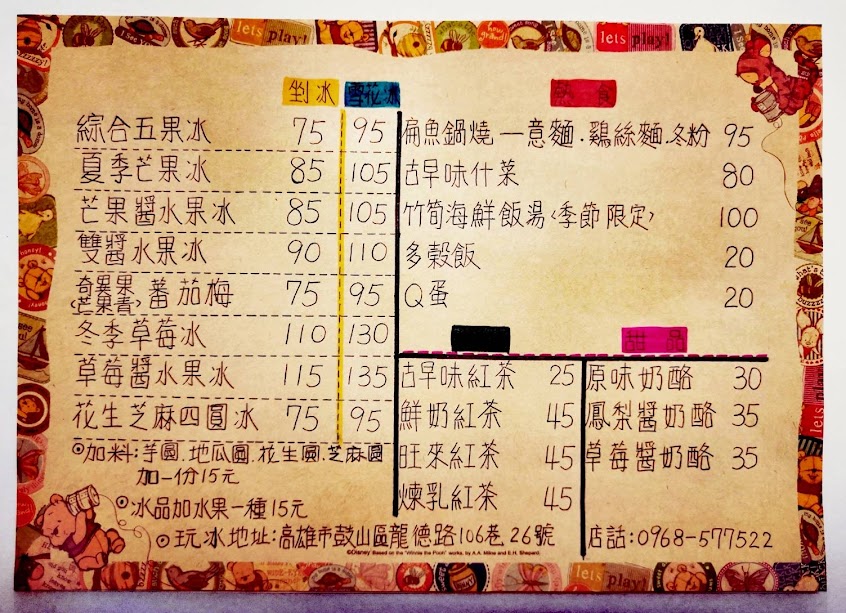 剉冰 雪花冰
綜合五果冰 75 95
夏季芒果冰 85 105
芒果醬水果冰 85 105
雙醬水果冰 90 110
奇異果
(芒果青) 蕃茄梅 75 95
冬季草莓冰 110 130
草莓醬水果冰 115 135
花生芝麻四圓冰 75 95
⊙加料:芋圓.地瓜圓.花生圓.芝麻圓
加一份15元
⊙冰品加水果一種15元
熱食
扁魚鍋燒—意麵.鷄絲麵.冬粉 95
古早味什菜 80
竹筍海鮮飯湯<季節限定> 100
多穀飯 20
Q蛋 20
古早味紅茶 25
鮮奶紅茶 45
旺來紅茶 45
煉乳紅茶 45
甜品
原味奶酪 30
鳳梨醬奶酪 35
草莓醬奶酪 35
⊙玩冰地址:高雄市鼓山區龍德路106巷26號 店話:0968-577522
©Disney Based on the "Winnie the Pooh" works, by A.A. Milne and E.H. Shepard.
lets play!
lets play!